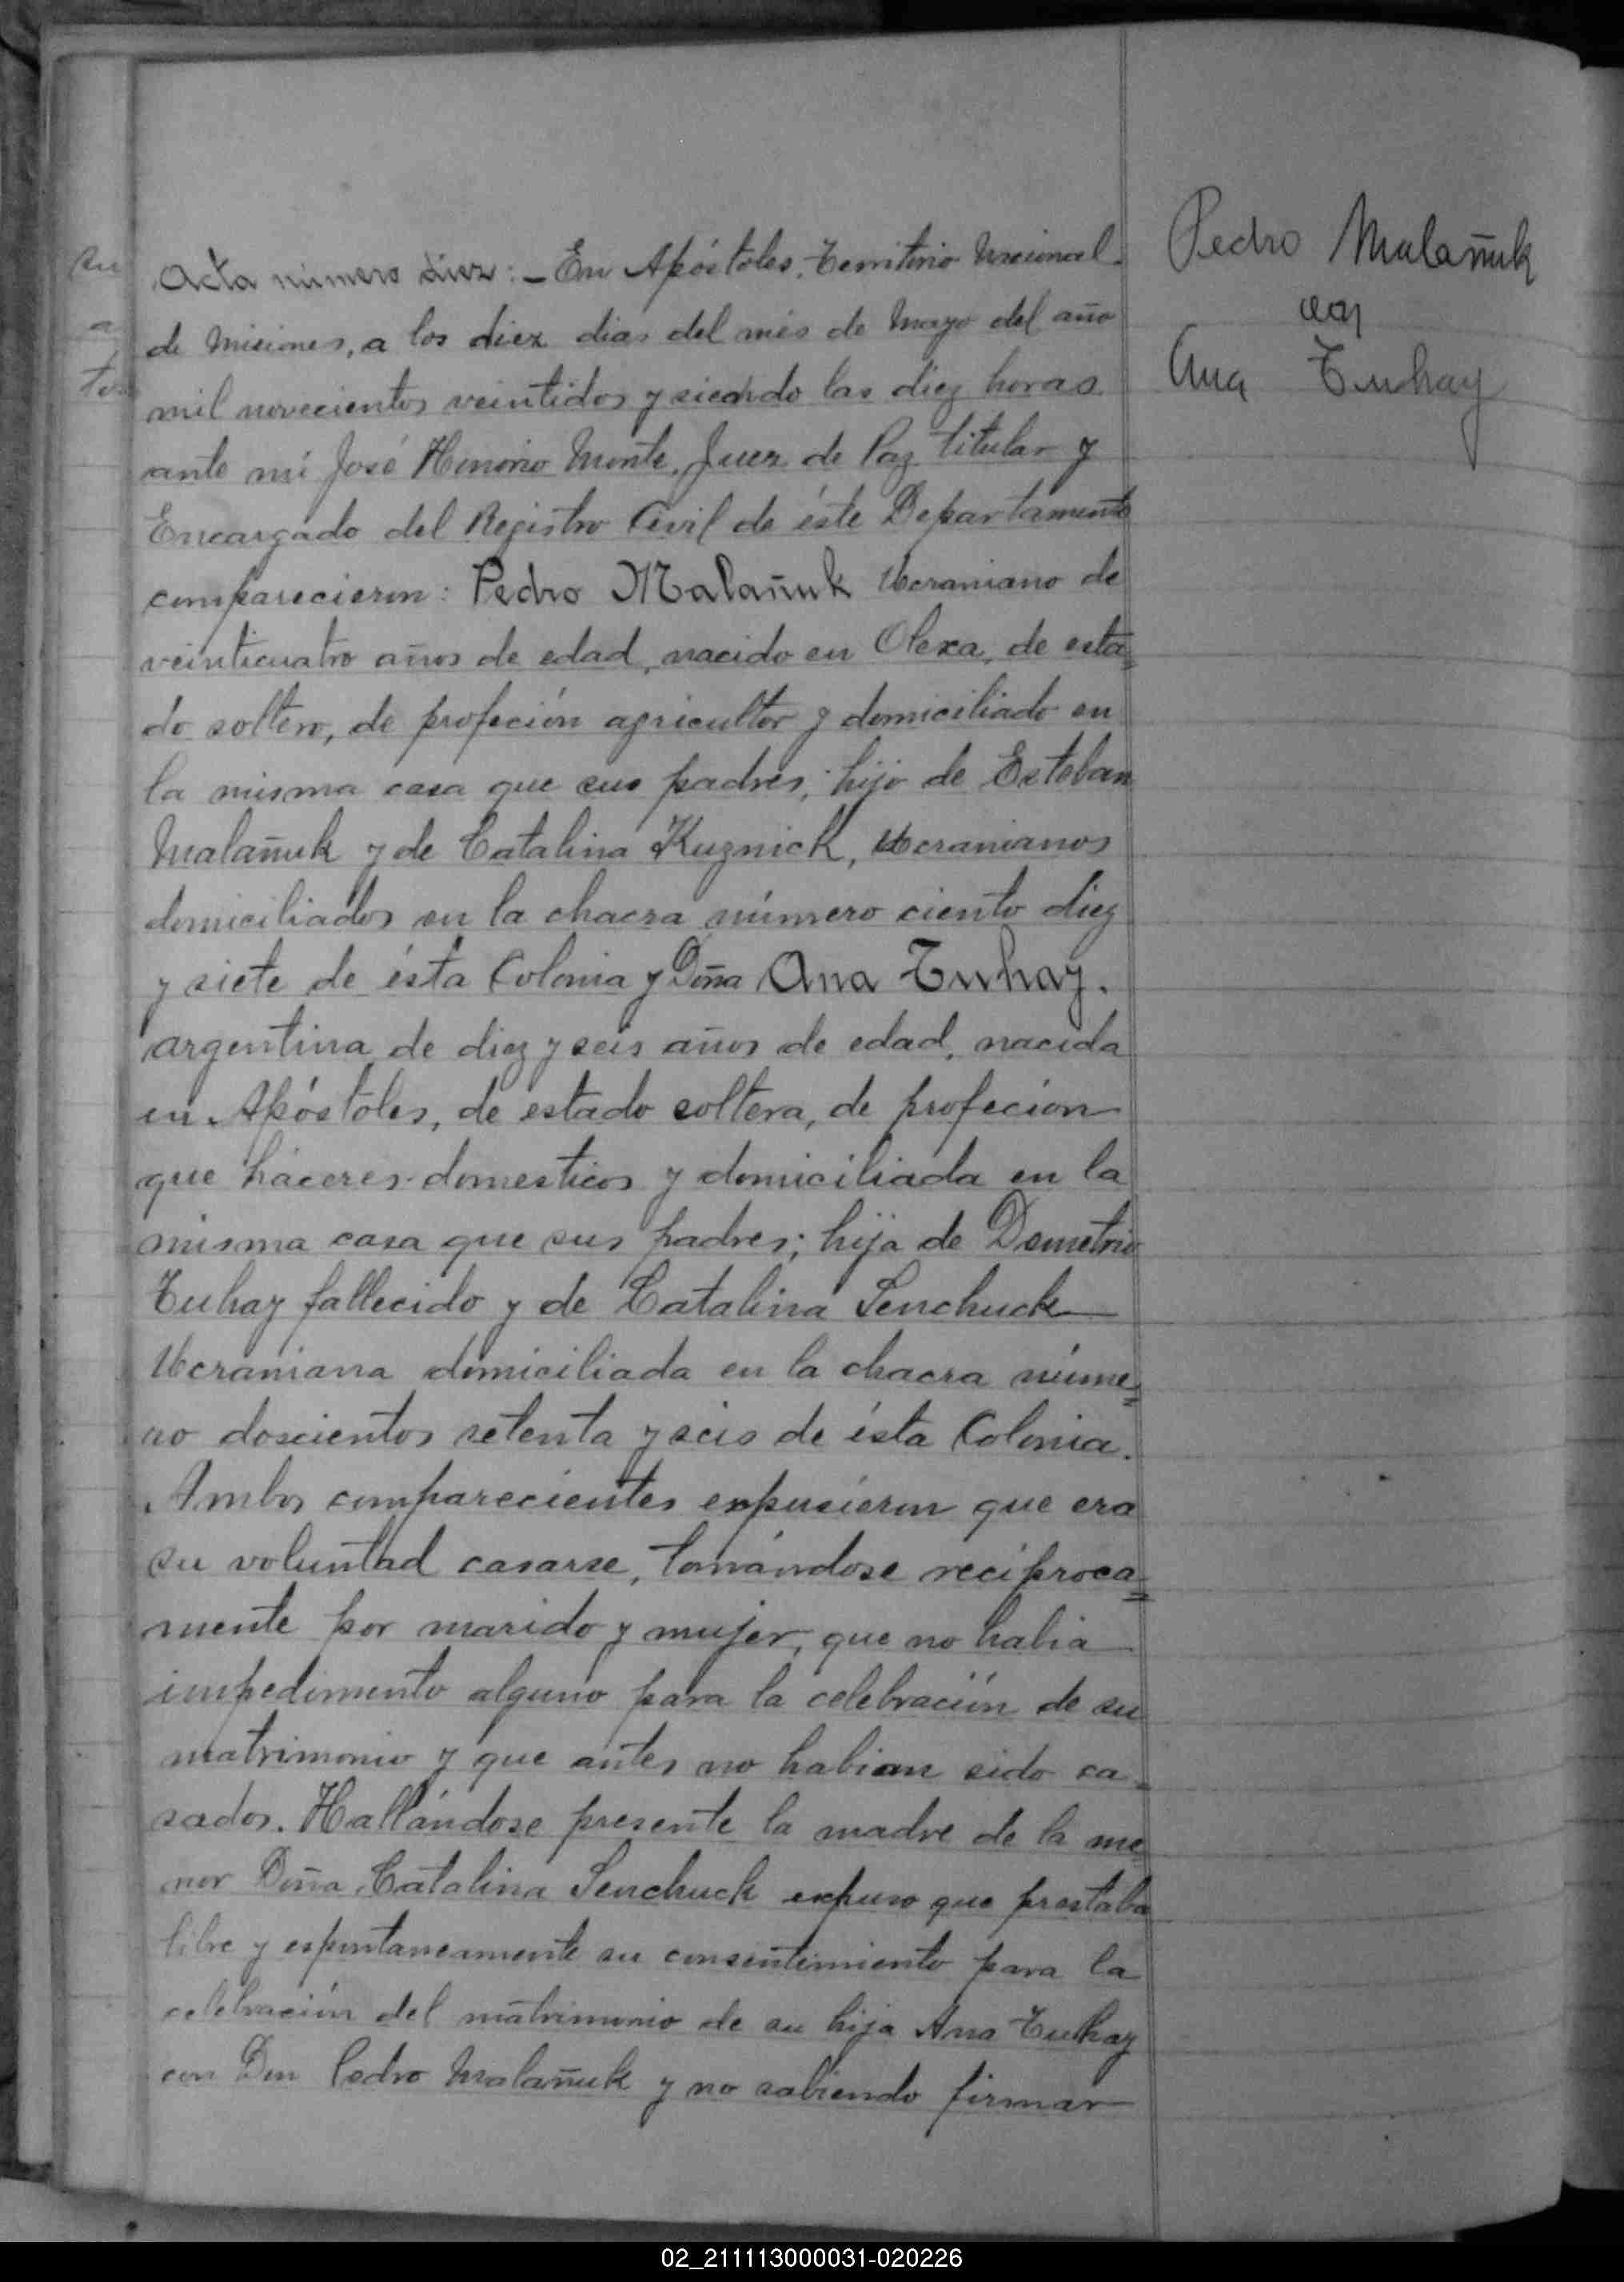 Pedro Malañuk
con
Ana Tuhay
su
a
Acta número diez:- En Apóstoles, Territorio Nacional
de Misiones, a los diez dias del més de Mayo del año
mil novecientos veintidos y siendo las diez horas
ante mi José Honorio Monte, Juez de Paz titular y
Encargado del Registro Civil de éste Departamento
comparecieron: Pedro Malañuk Ucraniano de
veinticuatro años de edad, nacido en Olexa, de esta=
do soltero, de profeción agricultor y domiciliado en
la misma casa que sus padres; hijo de Esteban
Malañuk y de Catalina Kuznick, Ucranianos
domiciliados en la chacra número ciento diez
y siete de ésta Colonia y Doña Ana Tuhay.
argentina de diez y seis años de edad, nacida
en Apóstoles, de estado soltera, de profecion
que háceres domesticos y domiciliada en la
misma casa que sus padres; hija de Demetrio
Tuhay fallecido y de Catalina Senchuck
Ucraniana domiciliada en la chacra núme=
ro doscientos setenta y seis de ésta Colonia.
Ambos comparecientes expusieron que era
su voluntad casarse, tomándose reciproca=
mente por marido y mujer, que no habia
impedimento alguno para la celebración de su
matrimonio y que antes no habian sido ca=
sados. Hallándose presente la madre de la me
nor Doña Catalina Senchuck expuso que prestaba
libre y espontaneamente su consentimiento para la
celebración del matrimonio de su hija Ana Tuhay
con Don Pedro Malañuk y no sabiendo firmar
02_211113000031-020226